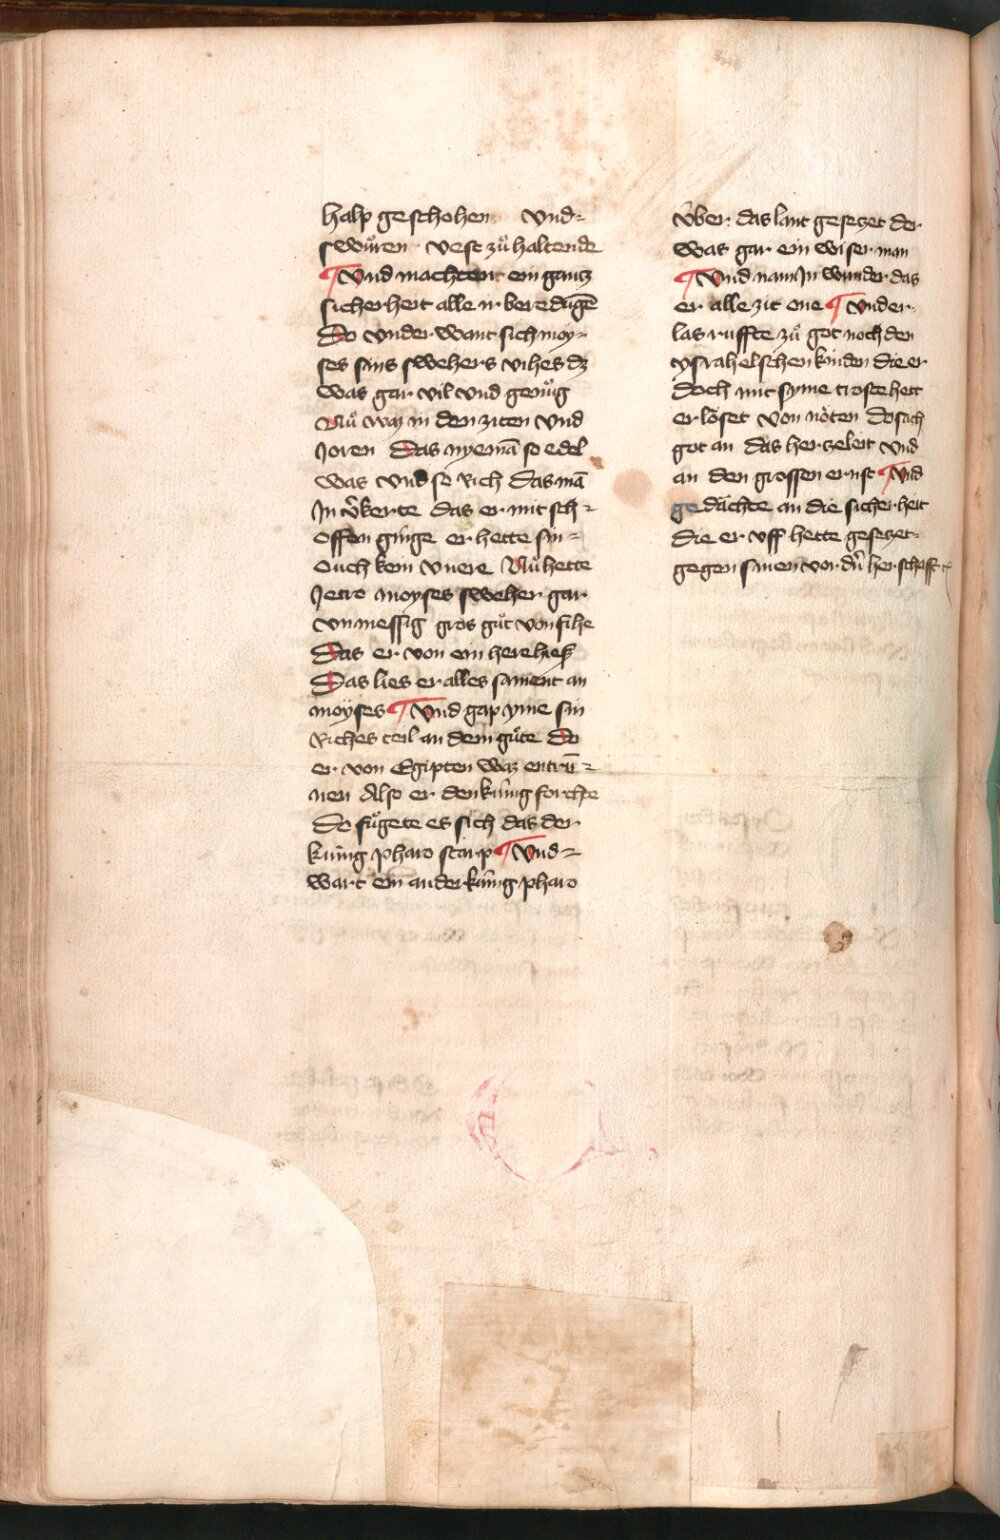 halp geschohen Vnd=
swůren vest zů haltende
¶ Vnd machtent ein gantz
sicherheit alle ir beredūgē
Do vnder want sich moy-
ses sins swehers vihes dz
was gar vil vnd genůg
Nů waz in den ziten vnd
Joren Das nyemā so edel
was vnd so Rich das mā
Jn v̄kerte das er mit sch=
offen ginge er hette sin=
Ouch kein vnere Nů hette
Jetro moyses sweher gar
vnmessig gros gůt von fihe
Das er von ein here hies
Das lies er alles sament an
moÿses ¶ Vnd gap yme sin
Riches teil an dem gůte Do
er von Egipten waz entrū=
nen Also er den kúnig forchte
Do fůgete es sich das der
kúnig pharo starp ¶ Vnd=
wart ein ander kúnig pharo
v́ber das lant gesetzet der
was gar ein wiser man
¶ Vnd nam Jn wunder das
er alle zit one ¶ Vnder
las ruffte zů got noch den
ysrahelschen kinden die er
doch mit syme troste hett
erlöset von nöten do sach
got an das herzeleit vnd
an den grossen ernst ¶ Vnd
gedächte an die sicherheit
die er vff hette gesetzet=
gegen sinen vordn̄ herschafft